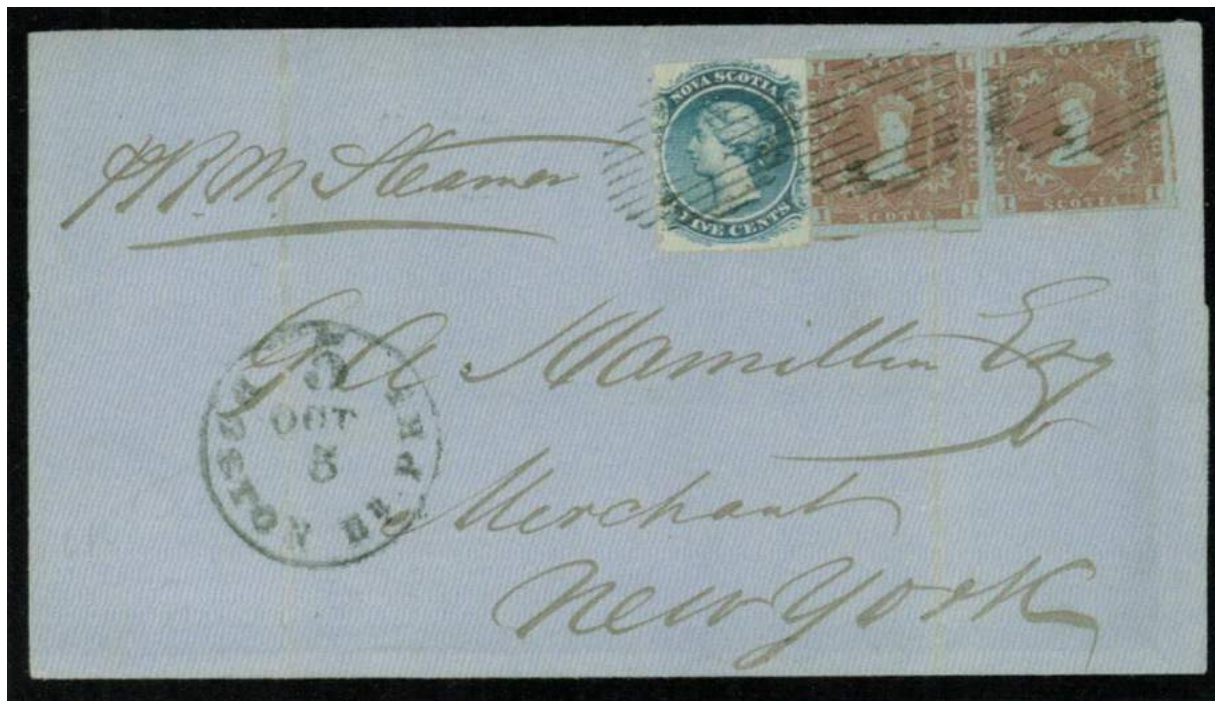 NOVA SCOTIA
FIVE CENTS
1 NOVA 1
1 SCOTIA 1
1 NOVA 1
1 SCOTIA 1
p R M Steamer
G A Hamilton Esq
Merchant
New York
BOSTON BR. PKT
OCT
5